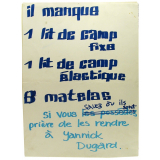 il manque
1 lit de camp
fixe
1 lit de camp
élastique
8 matelas
Si vous savez où ils sont
les possédez
prière de les rendre
à Yannick
Dugard.